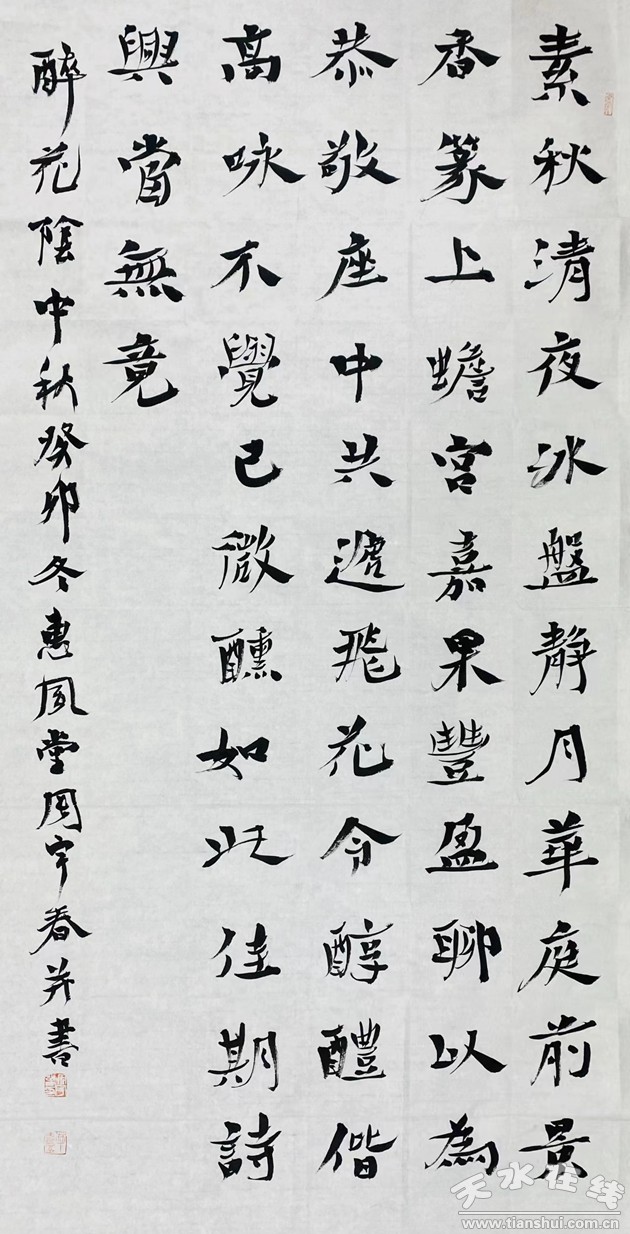 素秋清夜冰盤靜月華庭前景
香篆上蟾宮嘉果豐盈聊以為
恭敬座中共遞飛花令醇醴偕
高咏不覺已微醺如此佳期詩
興當無竟
醉花陰中秋癸卯冬惠風堂周宇春并書
天水在线
www.tianshui.com.cn